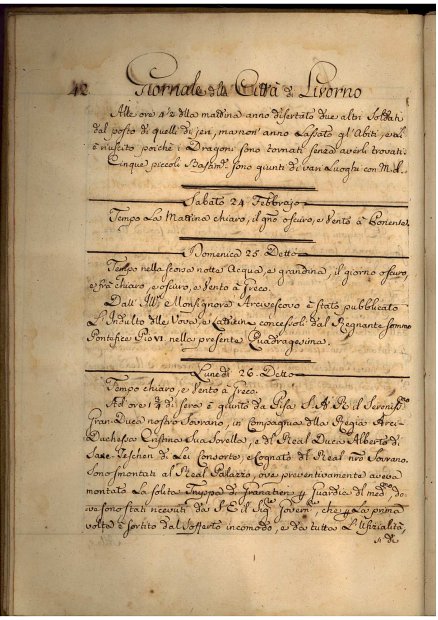 42 Giornale della Città di Livorno
Alle ore 4 1/2 della mattina anno disertato due altri Soldati
dal posto di quelli di jeri, ma non anno Lassato gl'Abiti, e
è riuscito poichè i Dragoni sono tornati senza averli trovati.
Cinque piccoli Bastim. sono giunti di vari Luoghi con M.
Sabato 24 Febbrajo
Tempo La Mattina chiaro, il gno oscuro, e Vento à Ponente.
Domenica 25 Detto
Tempo nella scorsa notte Acqua, e grandina, il giorno oscuro,
e frà chiaro, e oscuro, e Vento à Greco.
Dall' Ill. Monsignore Arcivescovo è stato pubblicato
L'Indulto delle Vova, e Latticin concessoli dal Regnante sommo
Pontefice Pio VI. nella presente Quadragesima.
Lunedì 26 Detto
Tempo chiaro, e Vento à Greco.
Ad ore 1 di sera è giunto da Pisa S.A.R. il Sereniss.mo
Gran-Duca nostro Sovrano, in Compagnia della Regia Arci-
Duchessa Cristina Sua Sorella, e del Real Duca Alberto di
Saxe-Teschen di Lei Consorte, e Cognato del Real nro Sovrano.
Sono smontati al Real Palazzo, ove preventivamente aveva
montato La solita Truppa di Granatieri p Guardia di med.mo, do-
ve sono stati ricevuti da S.E. il Sig.re Govern.re, che p La prima
volta è sortito dal sofferto incomodo, e da tutta L'Ufizialità,